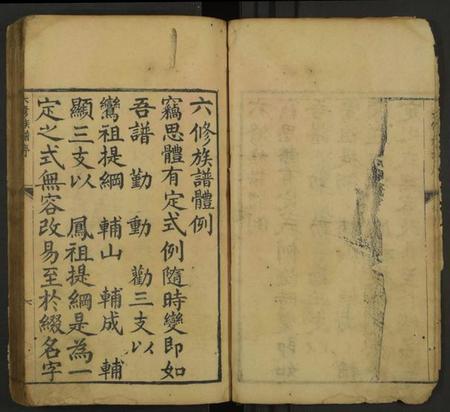 六修族譜體例
竊思體有定式例隨時變即如
吾譜 勤 動 勸三支以
鸞祖提綱 輔山 輔成 輔
顯三支以 鳳祖提綱是為一
定之式無容改易至於綴名字